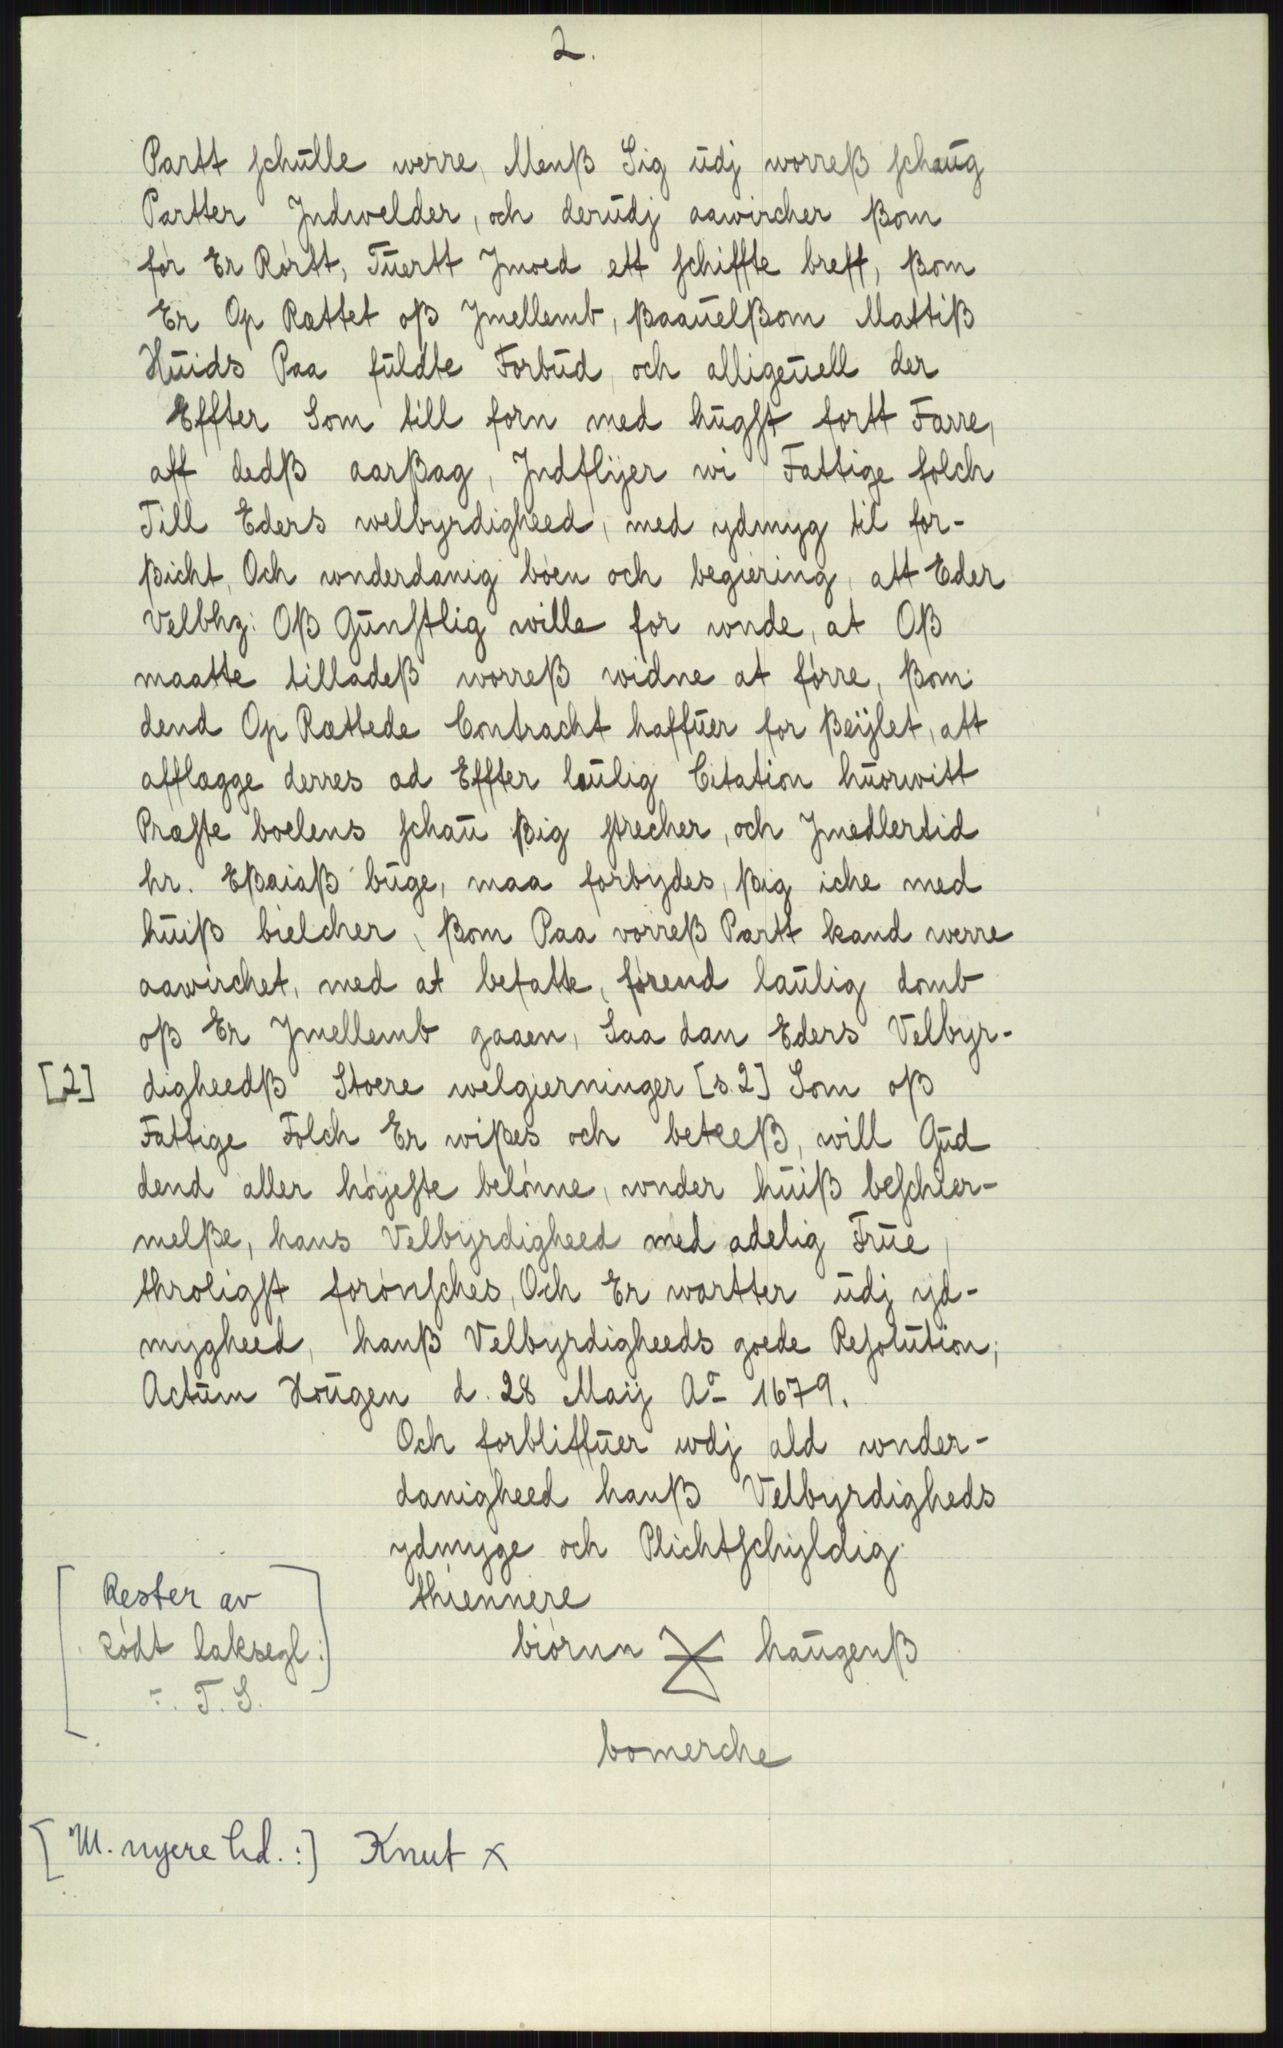 2.
Partt schulle werre, Menß Sig udj worreß schaug
Partter Jndwelder, och derudj aawircher ßom
før Er Rørtt, Tuertt Jmoed ett schiffte breff, ßom
Er Op Rættet oß Jmellemb, ßaauelßom Mattiß
Huids Paa fuldte Forbud, och alligeuell der
Effter Som till forn med hugst fortt Farre,
aff dedß aarßag, Jndflÿer wi Fattige folch
Till Eders welbyrdigheed, med ydmyg til for-
ßicht, Och wnderdanig bøen och begiering, att Eder
Velbhz: Oß Gunstlig wille for wnde, at Oß
maatte tilladeß worreß widne at førre, ßom
dend Op Rættede Contracht haffuer for ßeÿlet, att
afflægge derres æd Effter laulig Citation huorwitt
Præste boelens schau ßig strecher, och Jmedlertid
hr. Eßaiaß buge, maa forbydes, ßig iche med
huiß bielcher, ßom Paa vorreß Partt kand werre
aawirchet, med at befatte, førend laulig domb
oß Er Jmellemb gaaen, Saa dan Eders Velbyr-
[2] digheedß Stoere welgierninger [s.2] Som oß
Fattige Folch Er wißes och beteeß, will Gud
dend aller høyeste belønne, wnder huiß beschier-
melße, hans Velbyrdigheed med adelig Frue,
throligst forønsches, Och Er wartter udj yd-
mygheed, hanß Velbyrdigheeds goede Resolution;
Actum Hougen d. 28 Maij Aº 1679.
Och forbliffuer wdj ald wnder-
danigheed hanß Velbyrdigheds
ydmyge och Plichtschyldig
thiennere
[Rester av
rødt laksegl:
÷. T. S.]
biørnn haugenß
bomerche
[M. nyere hd.:] Knut x